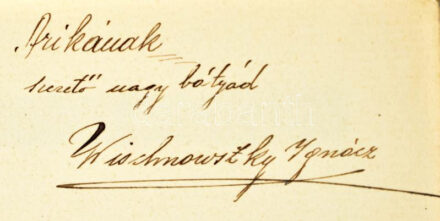 Arikának
szerető nagy bátyád
Wischnowszky Ignácz